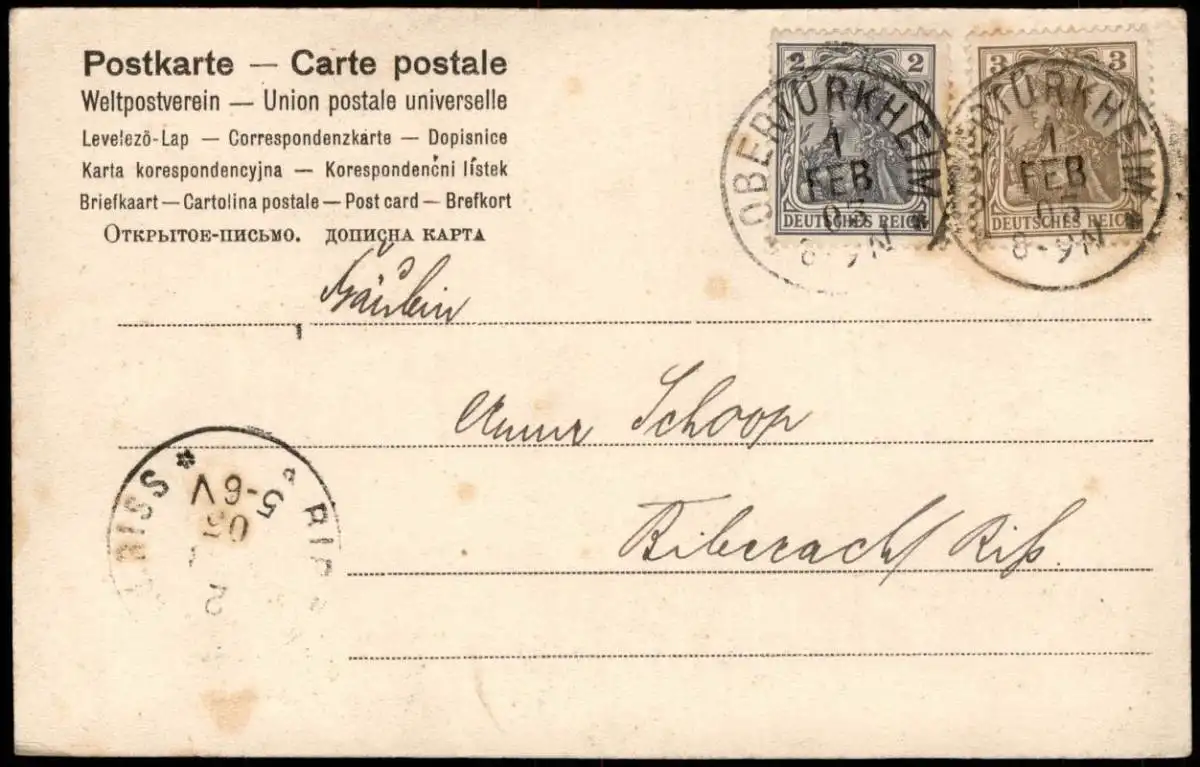 Postkarte — Carte postale
Weltpostverein — Union postale universelle
Levelező-Lap — Correspondenzkarte — Dopisnice
Karta korespondencyjna — Korespondenční lístek
Briefkaart — Cartolina postale — Post card — Brefkort
Открытое-письмо. дописна карта
2 2
DEUTSCHES REICH
3 3
DEUTSCHES REICH
OBERTÜRKHEIM
1
FEB
05
8-9N
OBERTÜRKHEIM
1
FEB
05
8-9N
Fräulein
Anna Schoop
Biberach/Riß.
RISS
5-6V
05
2